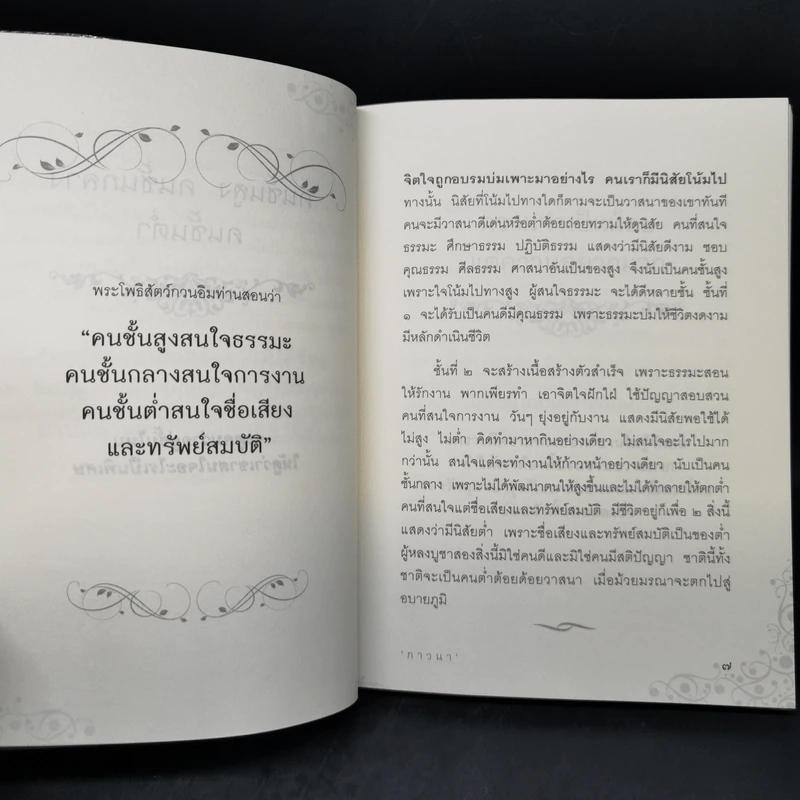 พระโพธิสัตว์กวนอิมท่านสอนว่า
“คนชั้นสูงสนใจธรรมะ
คนชั้นกลางสนใจการงาน
คนชั้นต่ำสนใจชื่อเสียง
และทรัพย์สมบัติ”
จิตใจถูกอบรมบ่มเพาะมาอย่างไร คนเราก็มีนิสัยโน้มไป
ทางนั้น นิสัยที่โน้มไปทางใดก็ตามจะเป็นวาสนาของเขาทันที
คนจะมีวาสนาดีเด่นหรือต่ำต้อยถ่อยทรามให้ดูนิสัย คนที่สนใจ
ธรรมะ ศึกษาธรรม ปฏิบัติธรรม แสดงว่ามีนิสัยดีงาม ชอบ
คุณธรรม ศีลธรรม ศาสนาอันเป็นของสูง จึงนับเป็นคนชั้นสูง
เพราะใจโน้มไปทางสูง ผู้สนใจธรรมะ จะได้ดีหลายชั้น ชั้นที่
๑ จะได้รับเป็นคนดีมีคุณธรรม เพราะธรรมะบ่มให้ชีวิตงดงาม
มีหลักดำเนินชีวิต
ชั้นที่ ๒ จะสร้างเนื้อสร้างตัวสำเร็จ เพราะธรรมะสอน
ให้รักงาน พากเพียรทำ เอาจิตใจฝักใฝ่ ใช้ปัญญาสอบสวน
คนที่สนใจการงาน วันๆ ยุ่งอยู่กับงาน แสดงมีนิสัยพอใช้ได้
ไม่สูง ไม่ต่ำ คิดทำมาหากินอย่างเดียว ไม่สนใจอะไรไปมาก
กว่านั้น สนใจแต่จะทำงานให้ก้าวหน้าอย่างเดียว นับเป็นคน
ชั้นกลาง เพราะไม่ได้พัฒนาตนให้สูงขึ้นและไม่ได้ทำลายให้ตกต่ำ
คนที่สนใจแต่ชื่อเสียงและทรัพย์สมบัติ มีชีวิตอยู่ก็เพื่อ ๒ สิ่งนี้
แสดงว่ามีนิสัยต่ำ เพราะชื่อเสียงและทรัพย์สมบัติเป็นของต่ำ
ผู้หลงบูชาสองสิ่งนี้มิใช่คนดีและมิใช่คนมีสติปัญญา ชาตินี้ทั้ง
ชาติจะเป็นคนต่ำต้อยด้อยวาสนา เมื่อม้วยมรณาจะตกไปสู่
อบายภูมิ
'ภาวนา'
๗